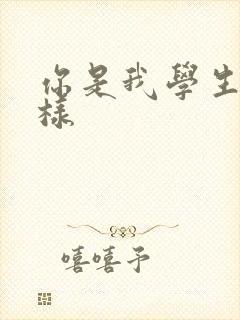 你是我學生
樣
嘻嘻予